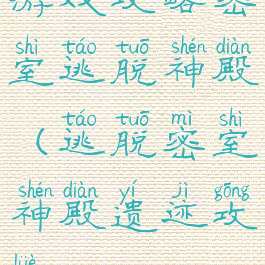 游戏攻略密
shì táo tuō shén diàn
室逃脱神殿
táo tuō mì shì
（逃脱密室
shén diàn yí jì gōng
神殿遗迹攻
lüè